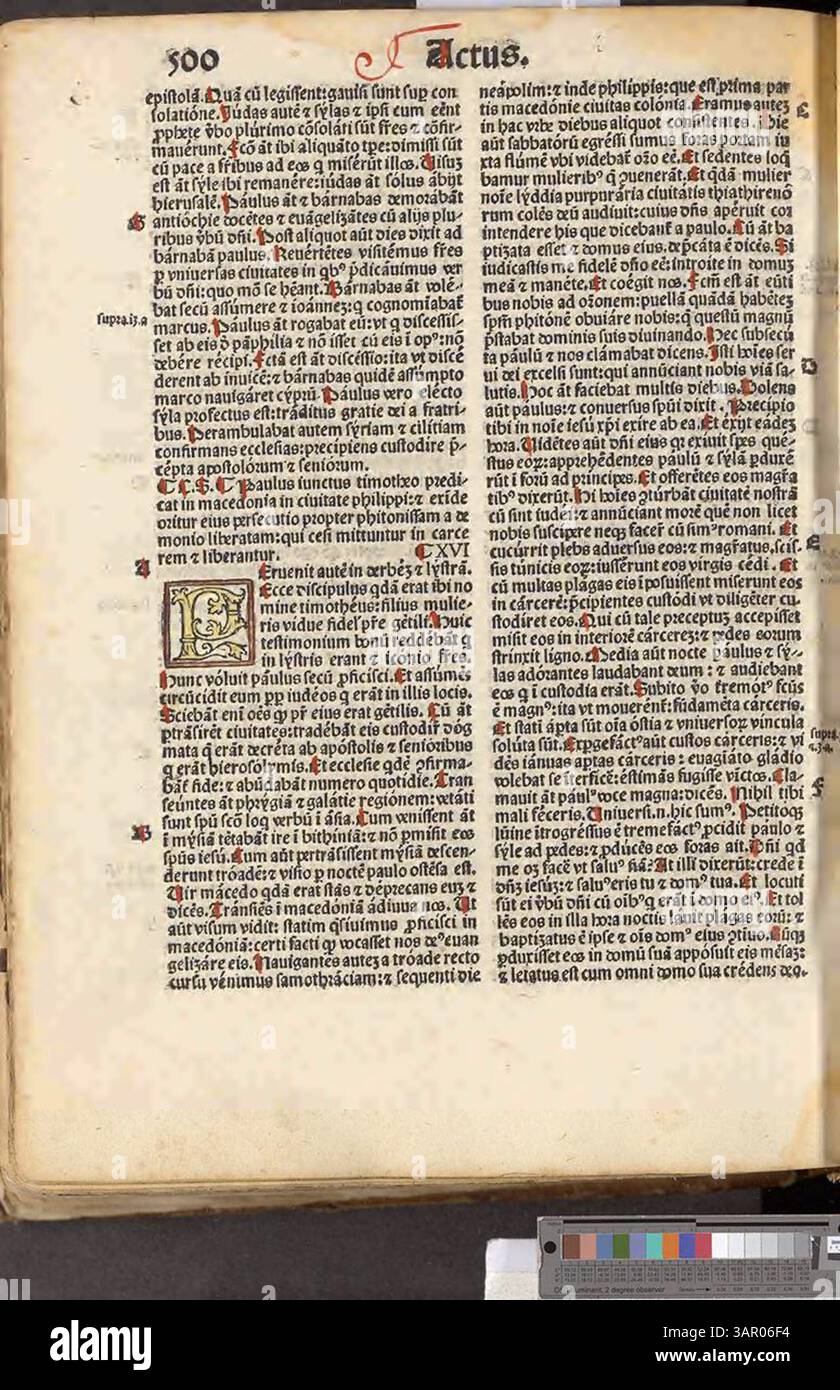 500
Actus.
epistolā. Quā cū legissent: gauisi sunt sup con
solatiōne. Iudas autē ⁊ sylas ⁊ ipsi cum eēnt
p̄phete v̄bo plurimo cōsolati sūt fr̄es ⁊ cōfir-
mauerunt. Fcō āt ibi aliquāto tpe: dimissi sūt
cū pace a fr̄ibus ad eos q̄ misērūt illos. Uisuȝ
est āt syle ibi remanēre: iūdas āt sōlus ābijt
hierusalē. Paulus āt ⁊ bárnabas demorabāt
G
antióchie docētes ⁊ euāgelizātes cū alijs plu-
ribus v̄bū dn̄i. Post aliquot aūt dies dixit ad
bárnabā paulus. Reuértētes visitēmus fr̄es
ꝑ vniuersas ciuitates in qbꝰ p̄dicāuimus ver
bū dn̄i: quo mō se hēant. Bárnabas āt volē-
bat secū assúmere ⁊ ioánneȝ: q̄ cognomīabat̄
supra.13.a
marcus. Páulus āt rogabat eū: vt q̄ discessis-
set ab eis d̄ pāphilia ⁊ nō isset cū eis ī opꝰ: nō
debére récipi. Fctā est āt discēssio: ita vt discē
derent ab inuicē: ⁊ bárnabas quidē assūmpto
marco nauigáret cyprū. Páulus vero electo
syla profectus est: tráditus gratie dei a fratri-
bus. Perambulabat autem syriam ⁊ ciliciam
confirmans ecclesias: precipiens custodire p̄-
cépta apostolórum ⁊ seniorum.
C.S. Paulus iunctus timotheo predi-
cat in macedonia in ciuitate philippi: ⁊ exīde
oritur eius persecutio propter phitonissam a de
monio liberatam: qui cesi mittuntur in carce
rem ⁊ liberantur. XVI
A
PEruenit autē in derbēȝ ⁊ lystrā.
Ecce discipulus qdā erat ibi no
mine timothéus: filius mulie-
ris vidue fidel' p̄re gētili. Huic
testimonium bonū reddebāt q̄
in lystris erant ⁊ iconio fr̄es.
Hunc vóluit paulus secū ꝓficisci. Et assūmēs
circūcidit eum ꝑp iudéos q̄ erāt in illis locis.
Sciebāt enī oēs qꝫ pr̄ eius erat gētilis. Cū āt
ꝑtrāsirēt ciuitates: tradēbāt eis custodir̄ dóg
mata q̄ erāt decréta ab apóstolis ⁊ senioribus
q̄ erāt hierosolymis. Et ecclesie qdē ꝯfirma-
bāt̄ fide: ⁊ abūdabāt numero quotidie. Tran
seúntes āt phrygiā ⁊ galátie regiónem: vetāti
sunt a spū scō loq̄ verbū ī asia. Cum venissent āt
B
ī mysiā tētabāt ire ī bithiniā: ⁊ nō ꝑmisit eos
spūs iesū. Cum aūt pertrāsissent mysiā descen-
derunt tróadē: ⁊ visio ꝑ noctē paulo ostēsa est.
Uir mácedo qdā erat stās ⁊ déprecans euȝ ⁊
dicēs. Trānsiēs ī macedóniā ádiuua nos. Ut
aūt visum vidit: statim q̄siuimus ꝓficisci in
macedóniā: certi facti qꝫ vocasset nos deꝰ euan
gelizáre eis. Nauigantes auteȝ a tróade recto
cursu vēnimus samothráciam: ⁊ sequenti die
neápolim: ⁊ inde philippis: que est prima par
tis macedónie ciuitas colónia. Eramus auteȝ
C
in hac vrbe diebus aliquot consistentes. Die
aūt sabbatórū egréssi sumus foras portam iu
xta flumē vbi videbat̄ or̄o eē. Et sedentes loq̄
bamur mulieribꝰ q̄ ꝯuenerāt. Et qdā mulier
noīe lyddia purpurária ciuitatis thiathirenō
rum colēs deū audiuit: cuius dn̄s apéruit cor
intendere his que dicebant̄ a paulo. Cū āt ba
ptizata esset ⁊ domus eius, dep̄cāta ē dicēs. Si
iudicastis me fidelē dn̄o eē: introite in domuȝ
meā ⁊ manéte. Et coégit nos. Fcm̄ est āt eūti
bus nobis ad or̄onem: puellā quādā habētēȝ
spm̄ phitónē obuiáre nobis: q̄ questū magnū
p̄stabat dominis suis diuinando. Hec subsecu
D
ta páulū ⁊ nos clāmabat dicens. Isti hoīes ser
ui dei excelsi sunt: qui annúciant nobis viā sa-
lutis. Hoc āt faciebat multis diebus. Dolens
aūt páulus: ⁊ conuersus spūi dixit. Precipio
tibi in noīe iesu xp̄i exire ab ea. Et exijt eádeȝ
hora. Uidētes aūt dn̄i eius qꝫ exiuit spes quē-
stus eoꝝ: apprehēdentes paulū ⁊ sylā ꝑduxē
rūt ī forū ad principes. Et offerētes eos magr̄a
tibꝰ dixerūt. Hi hoīes ꝯturbāt ciuitatē nostrā
cū sint iudei: ⁊ annúciant morē quē non licet
nobis suscipere neqꝫ facer̄ cū simꝰ romani. Et
E
cucúrrit plebs aduersus eos: ⁊ magr̄atus, scis-
sis túnicis eoꝝ: iussērunt eos virgis cédi. Et
cū multas plágas eis īposuissent miserunt eos
in cárcerē: p̄cipientes custódi vt diligēter cu-
stodiret eos. Qui cū tale preceptuȝ accepisset
misit eos in interiorē cárcereȝ: ⁊ pedes eorum
strinxit ligno. Media aūt nocte páulus ⁊ sy-
las adórantes laudabant deum: ⁊ audiebant
eos q̄ ī custodia erāt. Subito v̄o t̄remotꝰ fcūs
ē magnꝰ: ita vt mouerēnt̄: fūdamēta cárceris.
Et stati ápta sūt oīa óstia ⁊ vniuersoꝝ vincula
supra.
soluta sūt. Exꝑgefactꝰ aūt custos carceris: ⁊ vi
dēs iánuas aptas cárceris: euagiáto gládio
volebat se īterficē: éstimās fugisse victos. Cla-
F
mauit āt páulꝰ voce magna: dicēs. Nihil tibi
mali féceris. Uniuersi.n. hic sumꝰ. Petitoqꝫ
lúine ītrogréssus ē ⁊ tremefactꝰ ꝓcidit paulo ⁊
syle ad pedes: ⁊ ꝓdúcēs eos foras ait. Dn̄i qd
me oȝ facē vt saluꝰ fiā? At illi dixerūt: crede ī
dn̄ȝ iesúȝ: ⁊ saluꝰ eris tu ⁊ domꝰ tua. Et locuti
sūt ei v̄bū dn̄i cū oībꝰ q̄ erāt ī domo eiꝰ. Et tol
lēs eos in illa hora noctis lauit plágas eorū: ⁊
baptizatus ē ipse ⁊ oīs domꝰ eius ꝯtinuo. Cūqꝫ
ꝑduxisset eos in domū suā appósuit eis mēsaȝ:
⁊ letatus est cum omni domo sua crédens deo.
alamy
Image ID: 3AR06F4
www.alamy.com